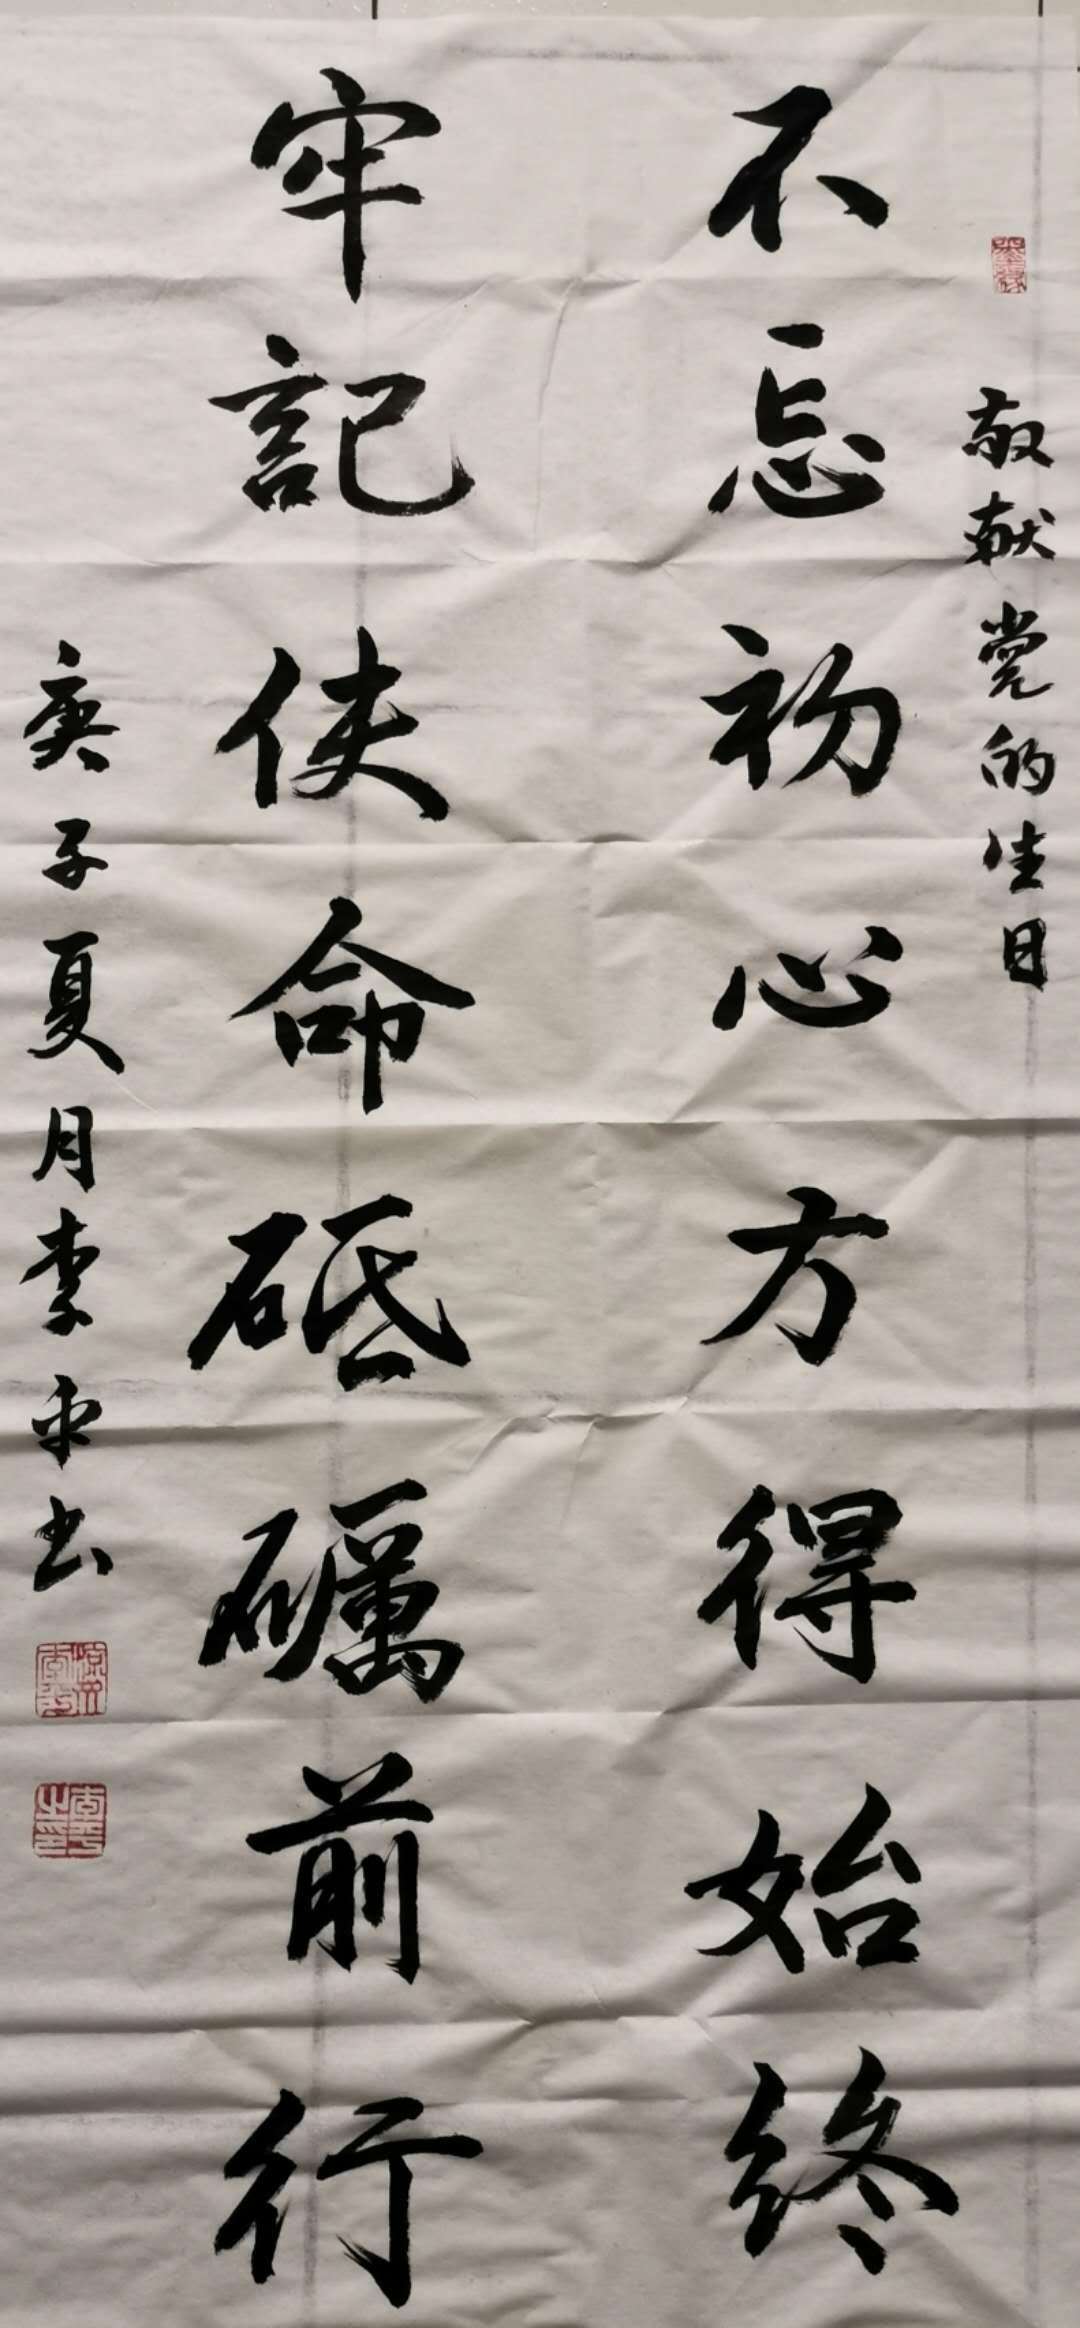 敬献党的生日
不忘初心方得始终
牢記使命砥礪前行
庚子夏月李平书